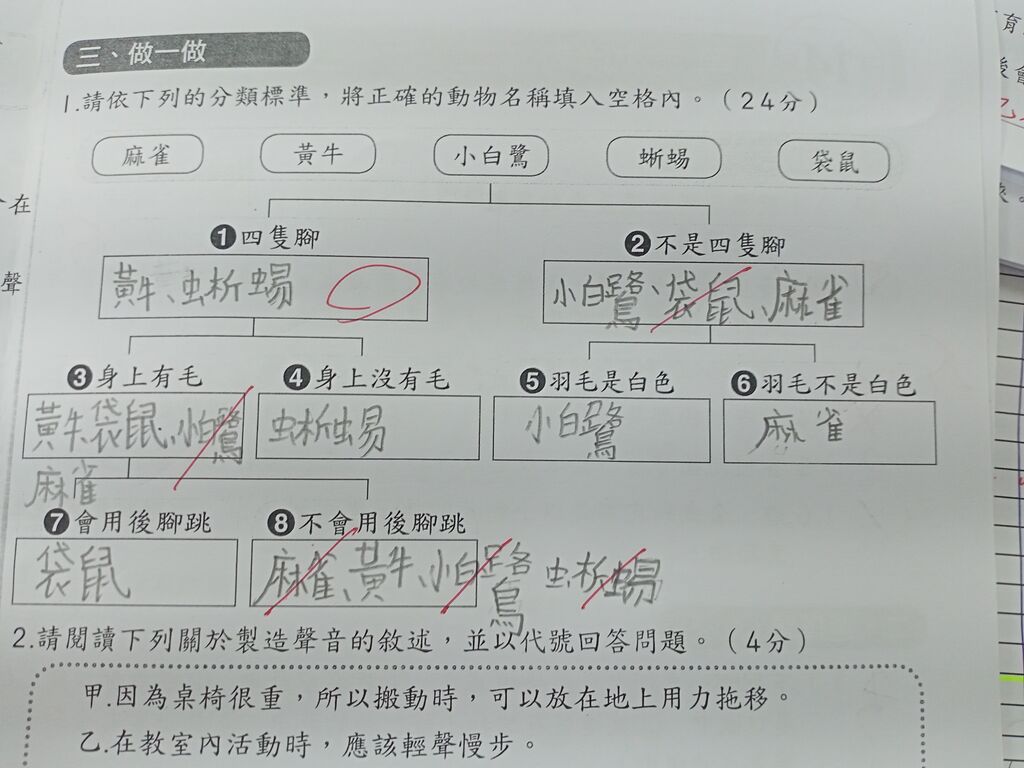 三、做一做
1.請依下列的分類標準，將正確的動物名稱填入空格內。（24分）
麻雀 黃牛 小白鷺 蜥蜴 袋鼠
❶四隻腳 ❷不是四隻腳
黃牛、蜥蜴 小白鷺、袋鼠、麻雀
❸身上有毛 ❹身上沒有毛 ❺羽毛是白色 ❻羽毛不是白色
黃牛袋鼠、小白鷺 蜥蜴 小白鷺 麻雀
麻雀
❼會用後腳跳 ❽不會用後腳跳
袋鼠 麻雀、黃牛、小白鷺 蜥蜴
2.請閱讀下列關於製造聲音的敘述，並以代號回答問題。（4分）
甲.因為桌椅很重，所以搬動時，可以放在地上用力拖移。
乙.在教室內活動時，應該輕聲慢步。
在
聲
育